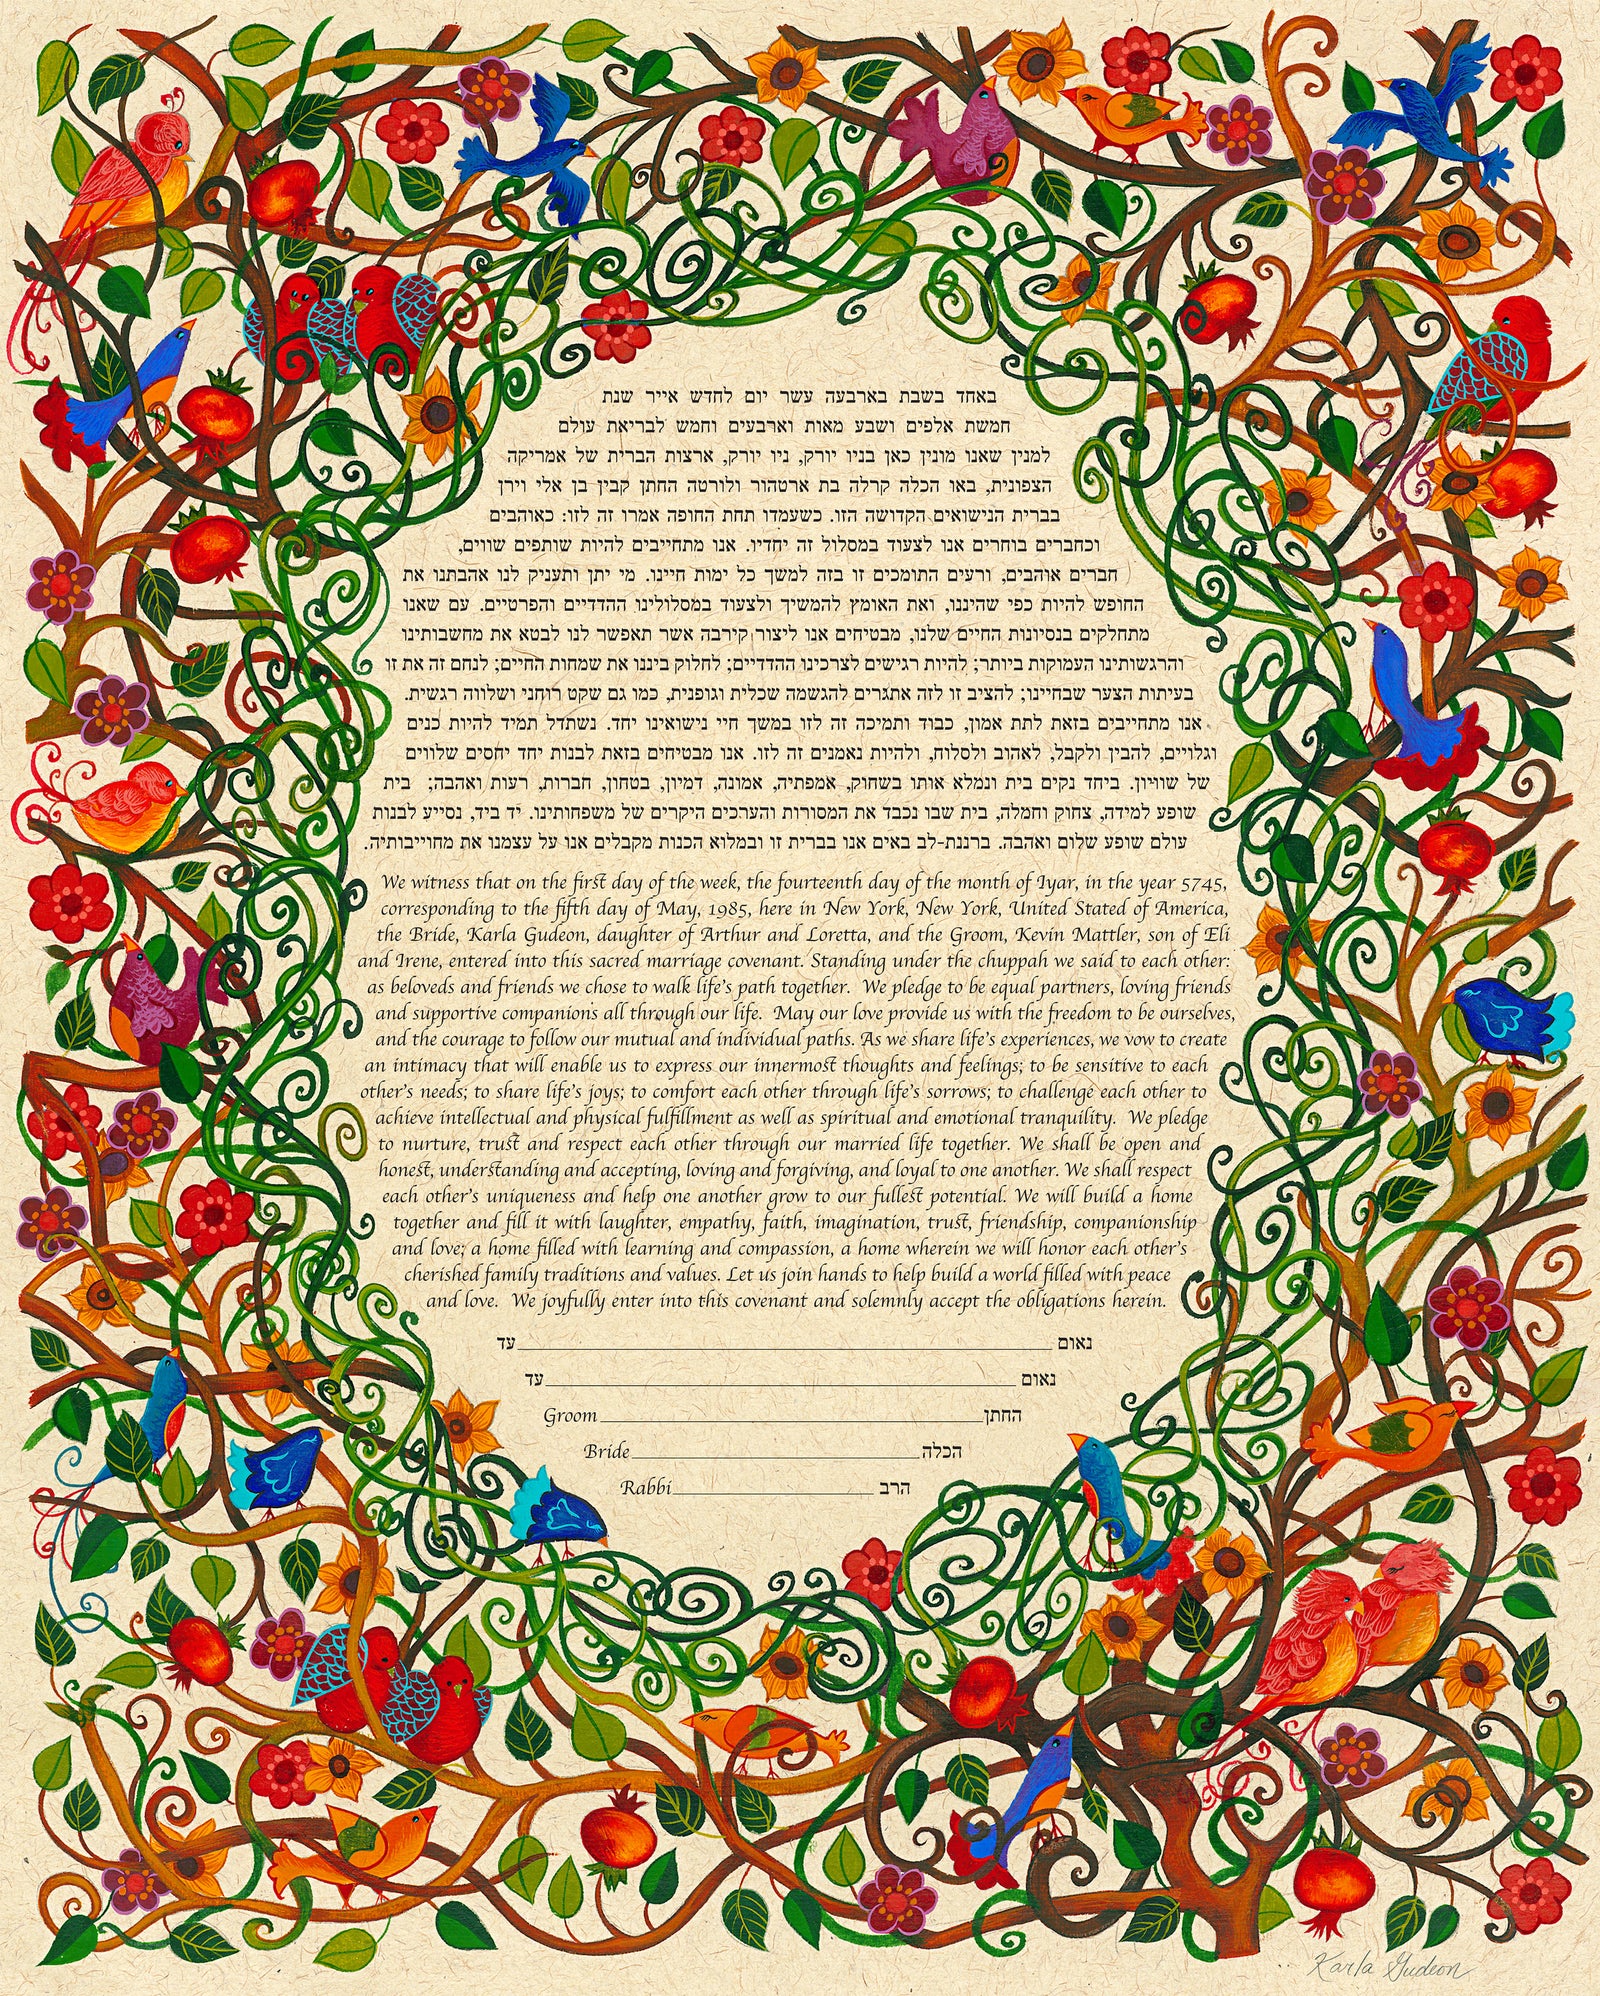 באחד בשבת בארבעה עשר יום לחדש אייר שנת
חמשת אלפים ושבע מאות וארבעים וחמש לבריאת עולם
למנין שאנו מונין כאן בניו יורק, ניו יורק, ארצות הברית של אמריקה
הצפונית, באו הכלה קרלה בת ארטהור ולורטה החתן קבין בן אלי וירן
בברית הנישואים הקדושה הזו. כשעמדו תחת החופה אמרו זה לזו: כאוהבים
וכחברים בוחרים אנו לצעוד במסלול זה יחדיו. אנו מתחייבים להיות שותפים שווים,
חברים אוהבים, ורעים התומכים זו בזה למשך כל ימות חיינו. מי יתן ותעניק לנו אהבתנו את
החופש להיות כפי שהיננו, ואת האומץ להמשיך ולצעוד במסלולינו ההדדיים והפרטיים. עם שאנו
מתחלקים בנסיונות החיים שלנו, מבטיחים אנו ליצור קירבה אשר תאפשר לנו לבטא את מחשבותינו
והרגשותינו העמוקות ביותר; להיות רגישים לצרכינו ההדדיים; לחלוק ביננו את שמחות החיים; לנחם זה את זו
בעיתות הצער שבחיינו; להציב זו לזה אתגרים להגשמה שכלית וגופנית, כמו גם שקט רוחני ושלווה רגשית.
אנו מתחייבים בזאת לתת אמון, כבוד ותמיכה זה לזו במשך חיי נישואינו יחד. נשתדל תמיד להיות כנים
וגלויים, להבין ולקבל, לאהוב ולסלוח, ולהיות נאמנים זה לזו. אנו מבטיחים בזאת לבנות יחד יחסים שלווים
של שוויון. ביחד נקים בית ונמלא אותו בשחוק, אמפתיה, אמונה, דמיון, בטחון, חברות, רעות ואהבה; בית
שופע למידה, צחוק וחמלה, בית שבו נכבד את המסורות והערכים היקרים של משפחותינו. יד ביד, נסייע לבנות
עולם שופע שלום ואהבה. ברננת-לב באים אנו בברית זו ובמלוא הכנות מקבלים אנו על עצמנו את מחוייבותיה.
We witness that on the first day of the week, the fourteenth day of the month of Iyar, in the year 5745,
corresponding to the fifth day of May, 1985, here in New York, New York, United Stated of America,
the Bride, Karla Gudeon, daughter of Arthur and Loretta, and the Groom, Kevin Mattler, son of Eli
and Irene, entered into this sacred marriage covenant. Standing under the chuppah we said to each other:
as beloveds and friends we chose to walk life's path together. We pledge to be equal partners, loving friends
and supportive companions all through our life. May our love provide us with the freedom to be ourselves,
and the courage to follow our mutual and individual paths. As we share life's experiences, we vow to create
an intimacy that will enable us to express our innermost thoughts and feelings; to be sensitive to each
other's needs; to share life's joys; to comfort each other through life's sorrows; to challenge each other to
achieve intellectual and physical fulfillment as well as spiritual and emotional tranquility. We pledge
to nurture, trust and respect each other through our married life together. We shall be open and
honest, understanding and accepting, loving and forgiving, and loyal to one another. We shall respect
each other's uniqueness and help one another grow to our fullest potential. We will build a home
together and fill it with laughter, empathy, faith, imagination, trust, friendship, companionship
and love; a home filled with learning and compassion, a home wherein we will honor each other's
cherished family traditions and values. Let us join hands to help build a world filled with peace
and love. We joyfully enter into this covenant and solemnly accept the obligations herein.
נאום עד
נאום עד
Groom החתן
Bride הכלה
Rabbi הרב
Karla Gudeon